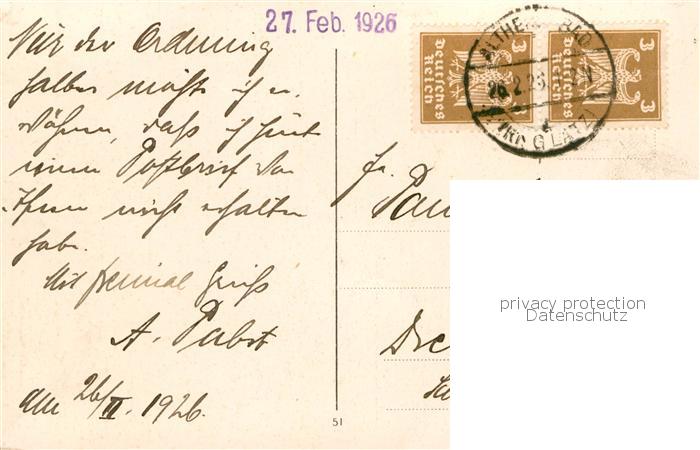 27. Feb. 1926
Nur der Ordnung
halber möchte ich er
wähnen, daß ich heut
einen Postbrief von
Ihnen nicht erhalten
habe.
Mit freundl Gruß
A. Pabst
am 26/II. 1926.
3 Deutsches Reich 3
3 Deutsches Reich 3
ALTHEIDE BAD
26.2.26
GLATZ
Fr.
Pau
Dre
51
privacy protection
Datenschutz